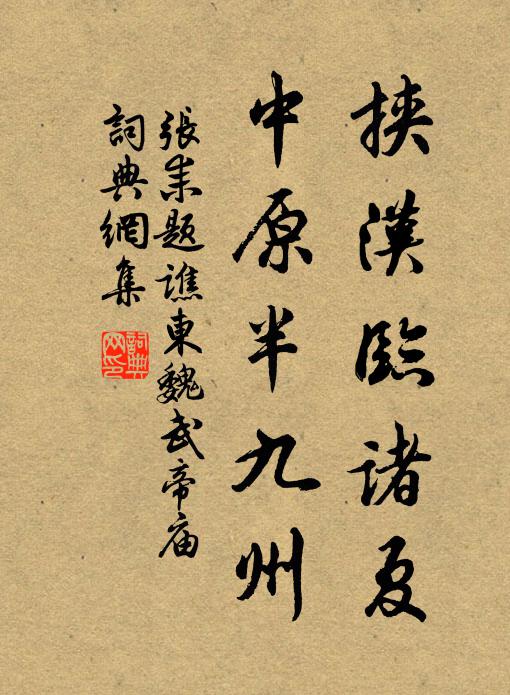 挟漢臨諸夏
中原半九州
張耒題譙東魏武帝庙
詞典網集
詞典网印